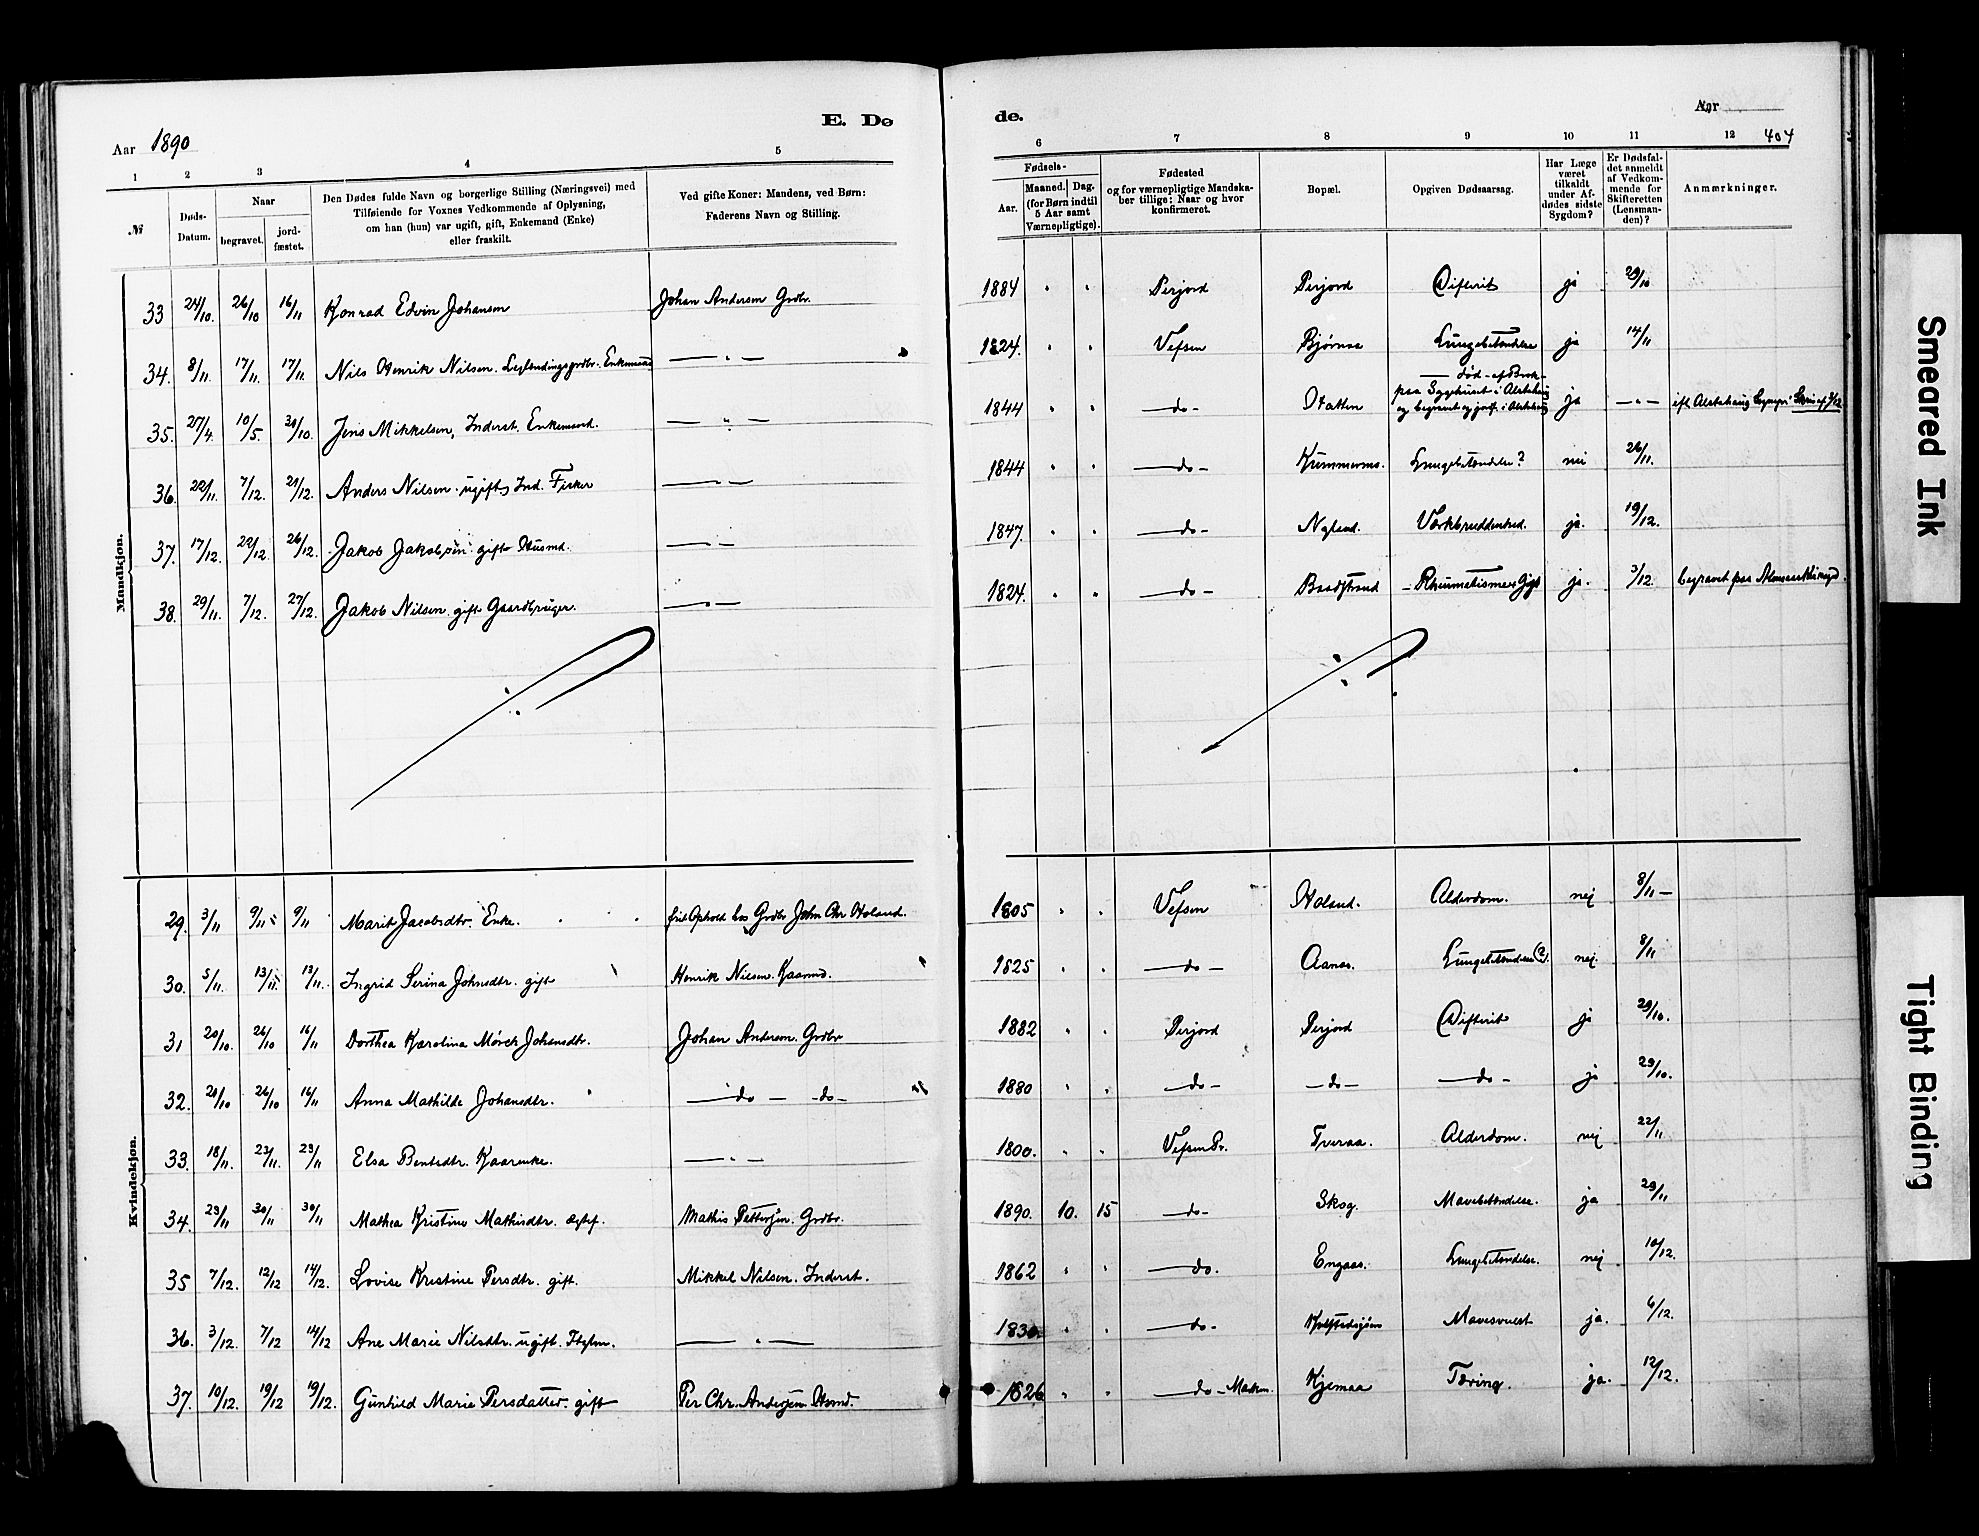 E. Dø de.
Aar 1890
Aar
404
1 2 3 4 5 6 7 8 9 10 11 12
№
Døds-Datum.
Naar
begravet.
jord-fæstet.
Den Dødes fulde Navn og borgerlige Stilling (Næringsvei) med
Tilføiende for Voxnes Vedkommende af Oplysning,
om han (hun) var ugift, gift, Enkemand (Enke)
eller fraskilt.
Ved gifte Koner: Mandens, ved Børn:
Faderens Navn og Stilling.
Fødsels-
Aar.
Maaned. Dag.
(for Børn indtil
5 Aar samt
Værnepligtige).
Fødested
og for værnepligtige Mandska-
ber tillige: Naar og hvor
konfirmeret.
Bopæl.
Opgiven Dødsaarsag.
Har Læge
været
tilkaldt
under Af-
dødes sidste
Sygdom?
Er Dødsfal-
det anmeldt
af Vedkom-
mende for
Skifteretten
(Lensman-
den)?
Anmærkninger.
Mandkjøn.
33 24/10. 26/10 16/11 Konrad Edvin Johansen Johan Andersen Grdbr. 1884 " " Perjord Perjord Difterit ja 29/10
34. 8/11. 17/11. 17/11. Nils Henrik Nilsen. Leylendingsgrdbr. Enkemand — " — 1824. " " Vefsen Bjørnaa Lungebetændelse ja 14/11
35. 27/4. 10/5. 31/10. Jens Mikkelsen, Inderst. Enkemand. — " — 1844 " " — do — Hatten — død af Brok — paa Sygehuset i Alstahaug og begravet og jordf. i Alstahaug ja — " — eft. Alstahaug Sognepr. Skriv. af 3/12
36. 22/11. 7/12. 21/12. Anders Nilsen. ugift, Ind. Fisker — " — 1844 " " — do — Lungebetændelse? nei 26/11.
37. 17/12. 22/12. 26/12. Jakob Jakobsen gift Husmd. — " — 1847. " " — do — Nyland. Værkbruddenhed. ja. 19/12.
38. 29/11. 7/12. 27/12. Jakob Nilsen. gift Gaardbruger. — " — 1824. " " — do — Baadstrand Rheumatisme Gigt ja. 3/12. begravet paa
Kvindekjøn.
29. 3/11 9/11 9/11 Marit Jacobsdtr. Enke. frit Ophold hos Grdbr John Chr Holand. 1805 " " Vefsen Holand. Alderdom. nej 8/11 —
30. 5/11. 13/11. 13/11. Ingrid Serina Johnsdtr. gift Henrik Nilsen. Kaarmd. 1825 " " — do — Aanes. Lungebetændelse (?). nej. 8/11
31 20/10. 26/10 16/11 Dorthea Karolina Mørch Johansdtr. Johan Andersen. Grdbr 1882 " " Perjord Perjord Difterit ja 29/10.
32. 21/10 26/10 16/11 Anna Mathilde Johansdtr. — do — do — 1880 " " — do — — do — — do — ja 29/10.
33. 18/11. 23/11. 23/11 Elsa Bentsdtr. Kaarenke. — " — 1800. " " Vefsen Pr. Tveraa. Alderdom. nej 22/11
34. 23/11 30/11 30/11 Mathea Kristine Mathisdtr. ægtef. Mathis Pettersen. Grdbr. 1890. 10. 15 — do — Skog. Mavebetændelse. ja 29/11
35 7/12. 12/12 14/12. Lovise Kristine Persdtr. gift. Mikkel Nilsen. Inderst. 1862 " " — do. Engaas. Lungebetændelse. nej 10/12.
36. 3/12. 7/12 14/12 Ane Marie Nilsdtr. ugift. — " — 1830. " " — do — Mavesvulst ja. 6/12.
37. 10/12. 19/12 19/12. Gunhild Marie Persdatter. gift Per Chr. Andersen Husmd. 1826 " " — do — Kjemaa Tæring. ja. 12/12.
Smeared Ink
Tight Binding